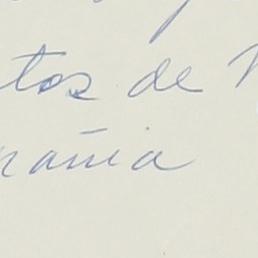 tos de
pañia